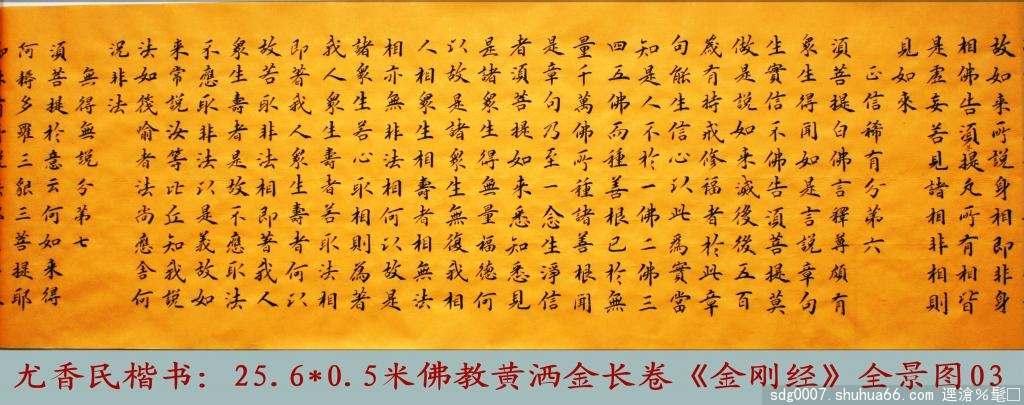 故如来所説身相即非身
相佛告須提凡所有相皆
是虚妄若見諸相非相則
見如来
正信稀有分第六
須菩提白佛言釋尊頗有
衆生得聞如是言説章句
生實信不佛告須菩提莫
做是説如来滅後後五百
歲有持戒修福者於此章
句能生信心以此為實當
知是人不於一佛二佛三
四五佛而種善根已於無
量千萬佛所種諸善根聞
是章句乃至一念生淨信
者須菩提如来悉知悉見
是諸衆生得無量福德何
以故是諸衆生無復我相
人相衆生相壽者相無法
相亦無非法相何以故是
諸衆生若心取相則為著
我人衆生壽者若取法相
即著我人衆生壽者何以
故若取非法相即著我人
衆生壽者是故不應取法
不應取非法以是義故如
来常説汝等比丘知我説
法如筏喻者法尚應舍何
况非法
無得無説分第七
須菩提於意云何如来得
何耨多羅三藐三菩提耶
尤香民楷书：25.6*0.5米佛教黄洒金长卷《金刚经》全景图03
sdg0007.shuhua66.com